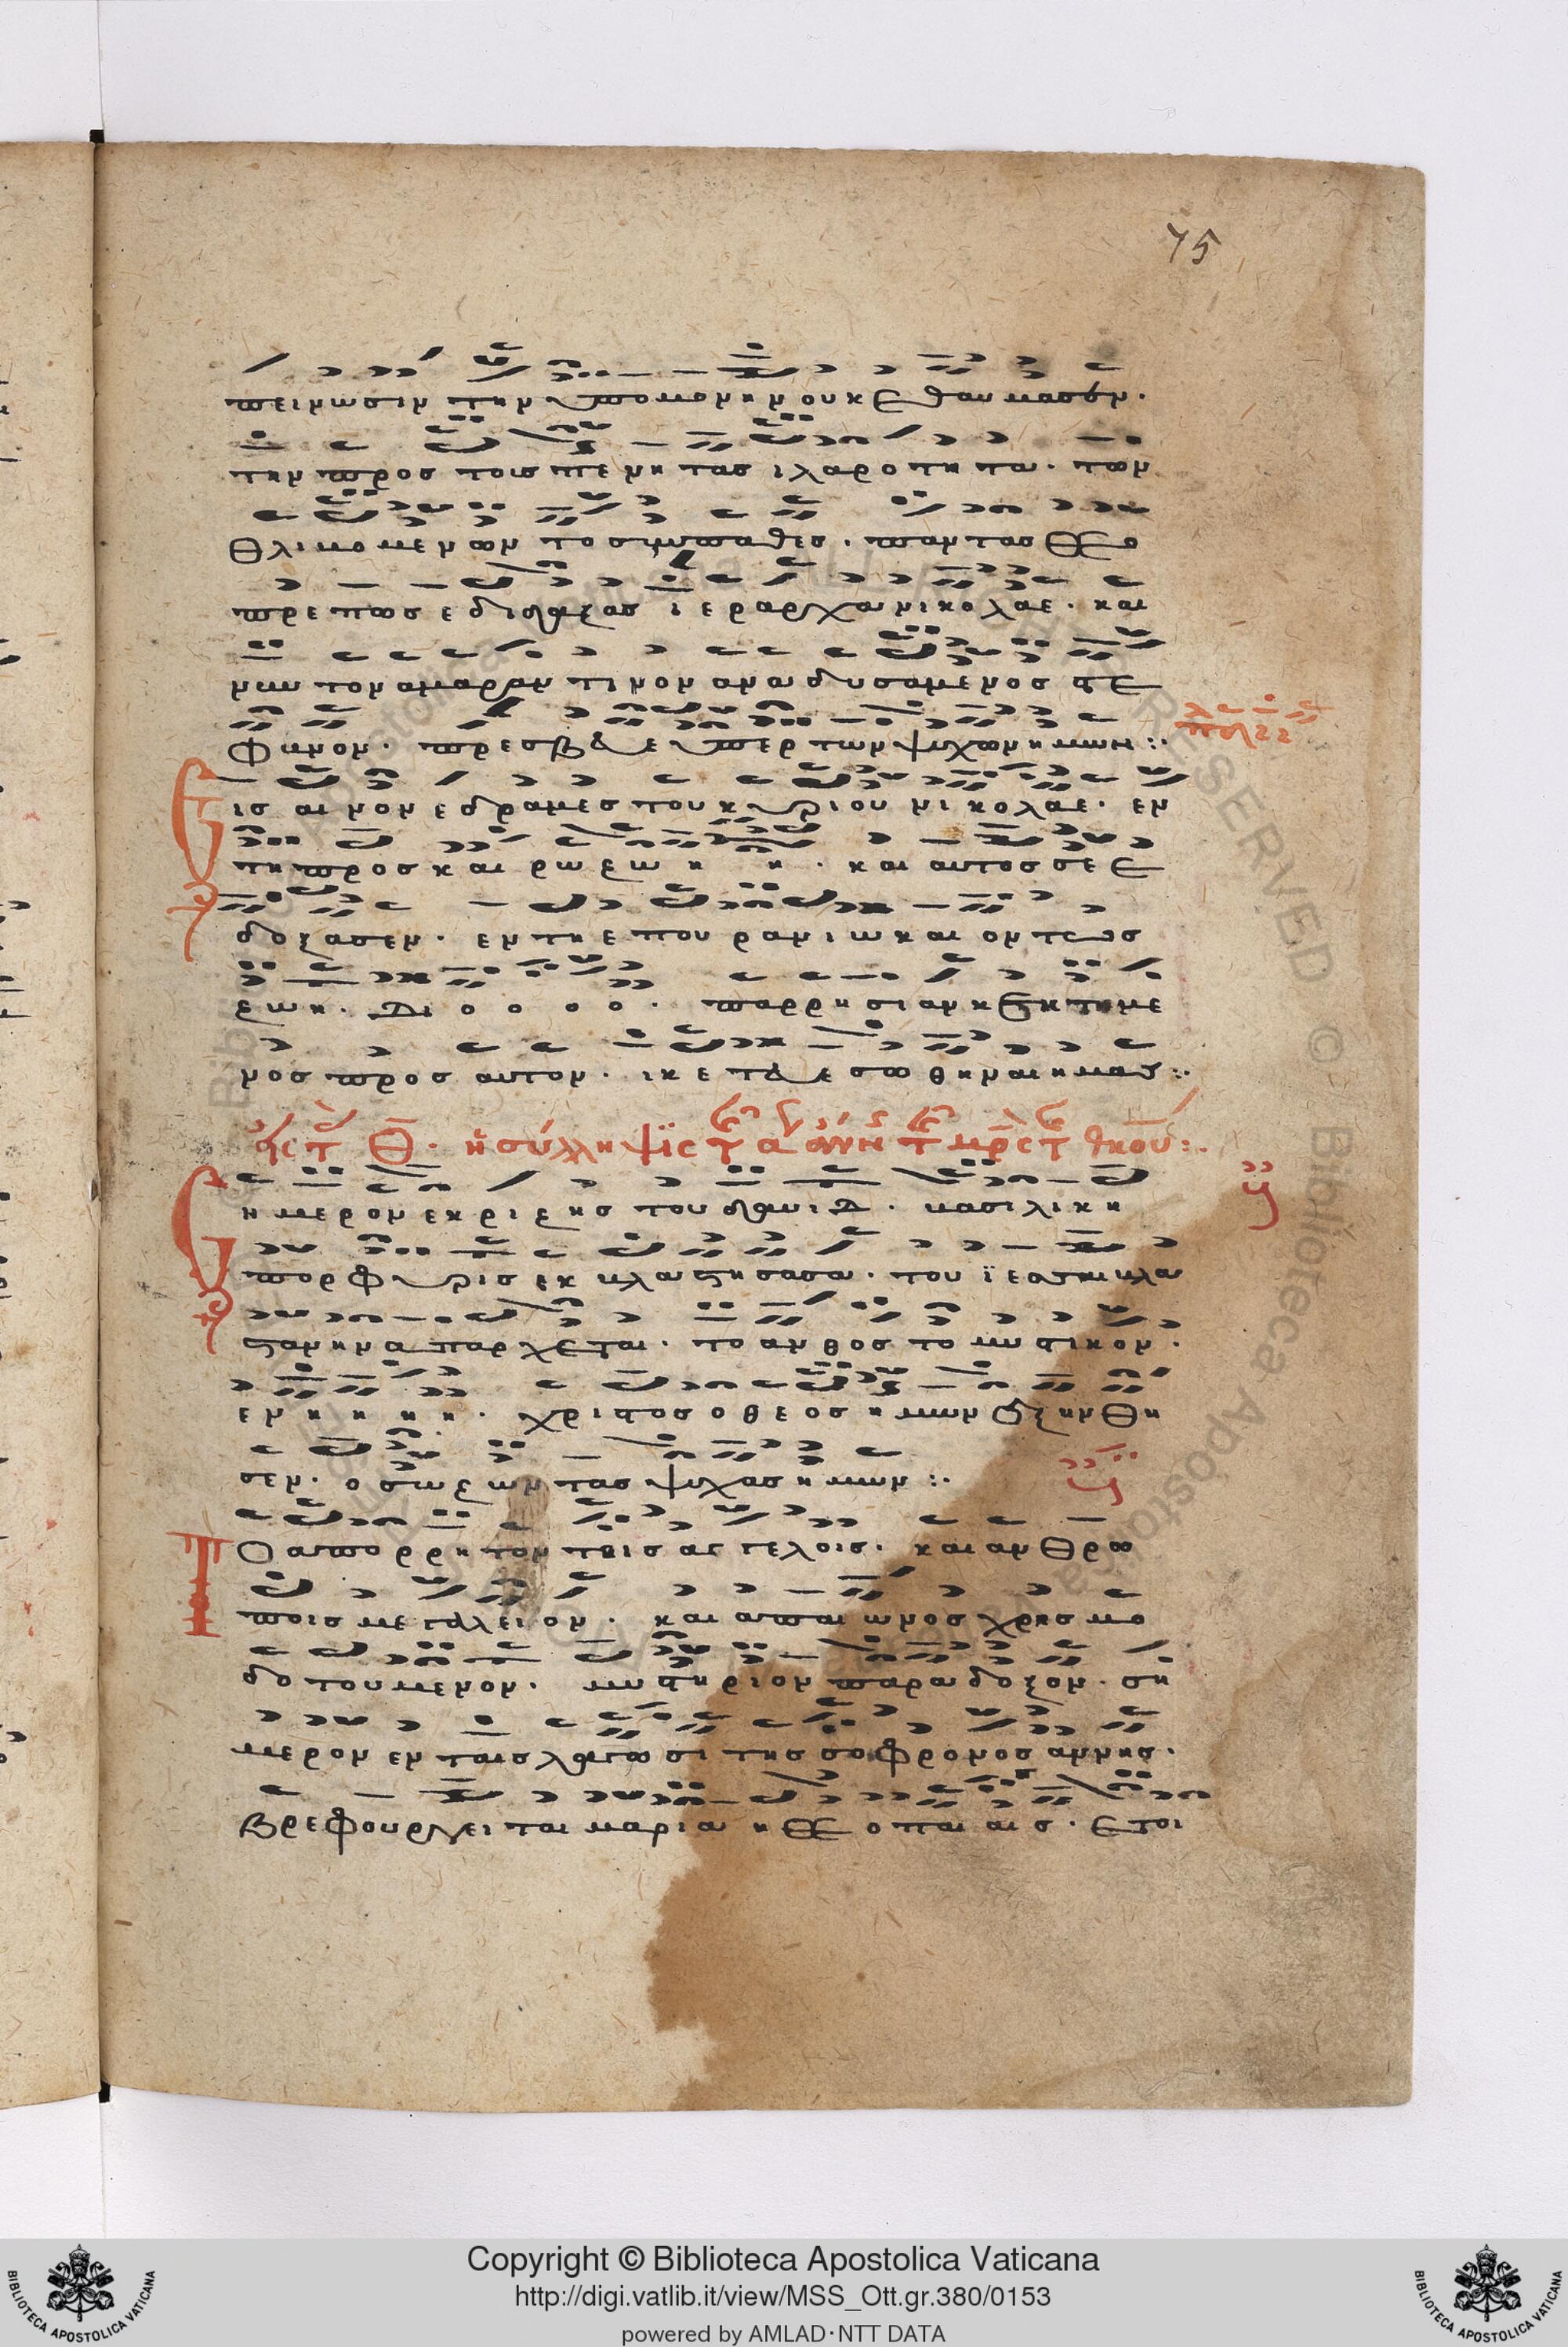 75
πεινωσιν την υπομονην ουκ εθαυμασεν.
την προς τοις πενητας ιλαροτητα. των
θλιβομενων το συμπαθες. παντας θεο
πρεπως εδιδαξας ϊεραρχα νικολαε. και
νυν τον αμαραντινον αναδυσαμενος στε
φανον. πρεσβευε υπερ των ψυχων ημων :.
Εις αινον εδραμες του κυριου νικολαε. εν
τη προσκαιρω ζωη η. και αυτος σε ε
δοξασεν. εν τη επουρανιω και οντως
ζωη. Διο ο ο ο. παρρησιαν κεκτημε
νος προς αυτον. ικετευε σωθηναι ημας :.
Θ. ἡ σύλληψις
Σημερον εκ ριζης του δαυιδ. βασιλικη
πορφυρις εκβλαστησασα. του ϊεσσαι βλα
στανειν απαρχεται. το ανθος το μυστικον.
εν η η η η. χριστος ο θεος ημων εξηνθη
σεν. ο σωζων τας ψυχας ημων :.
Το απορρητον τοις αγγελοις. και ανθρω
ποις μεγαλειον. και απ αιωνος χρησμο
δοτουμενον. μυστηριον παραδοξον. ση
μερον εν ταις λαγωσι της σωφρονος αννης.
βρεφουργειται μαρια η θεοπαις. ετοι
Copyright © Biblioteca Apostolica Vaticana
http://digi.vatlib.it/view/MSS_Ott.gr.380/0153
powered by AMLAD·NTT DATA
BIBLIOTECA APOSTOLICA VATICANA
BIBLIOTECA APOSTOLICA VATICANA